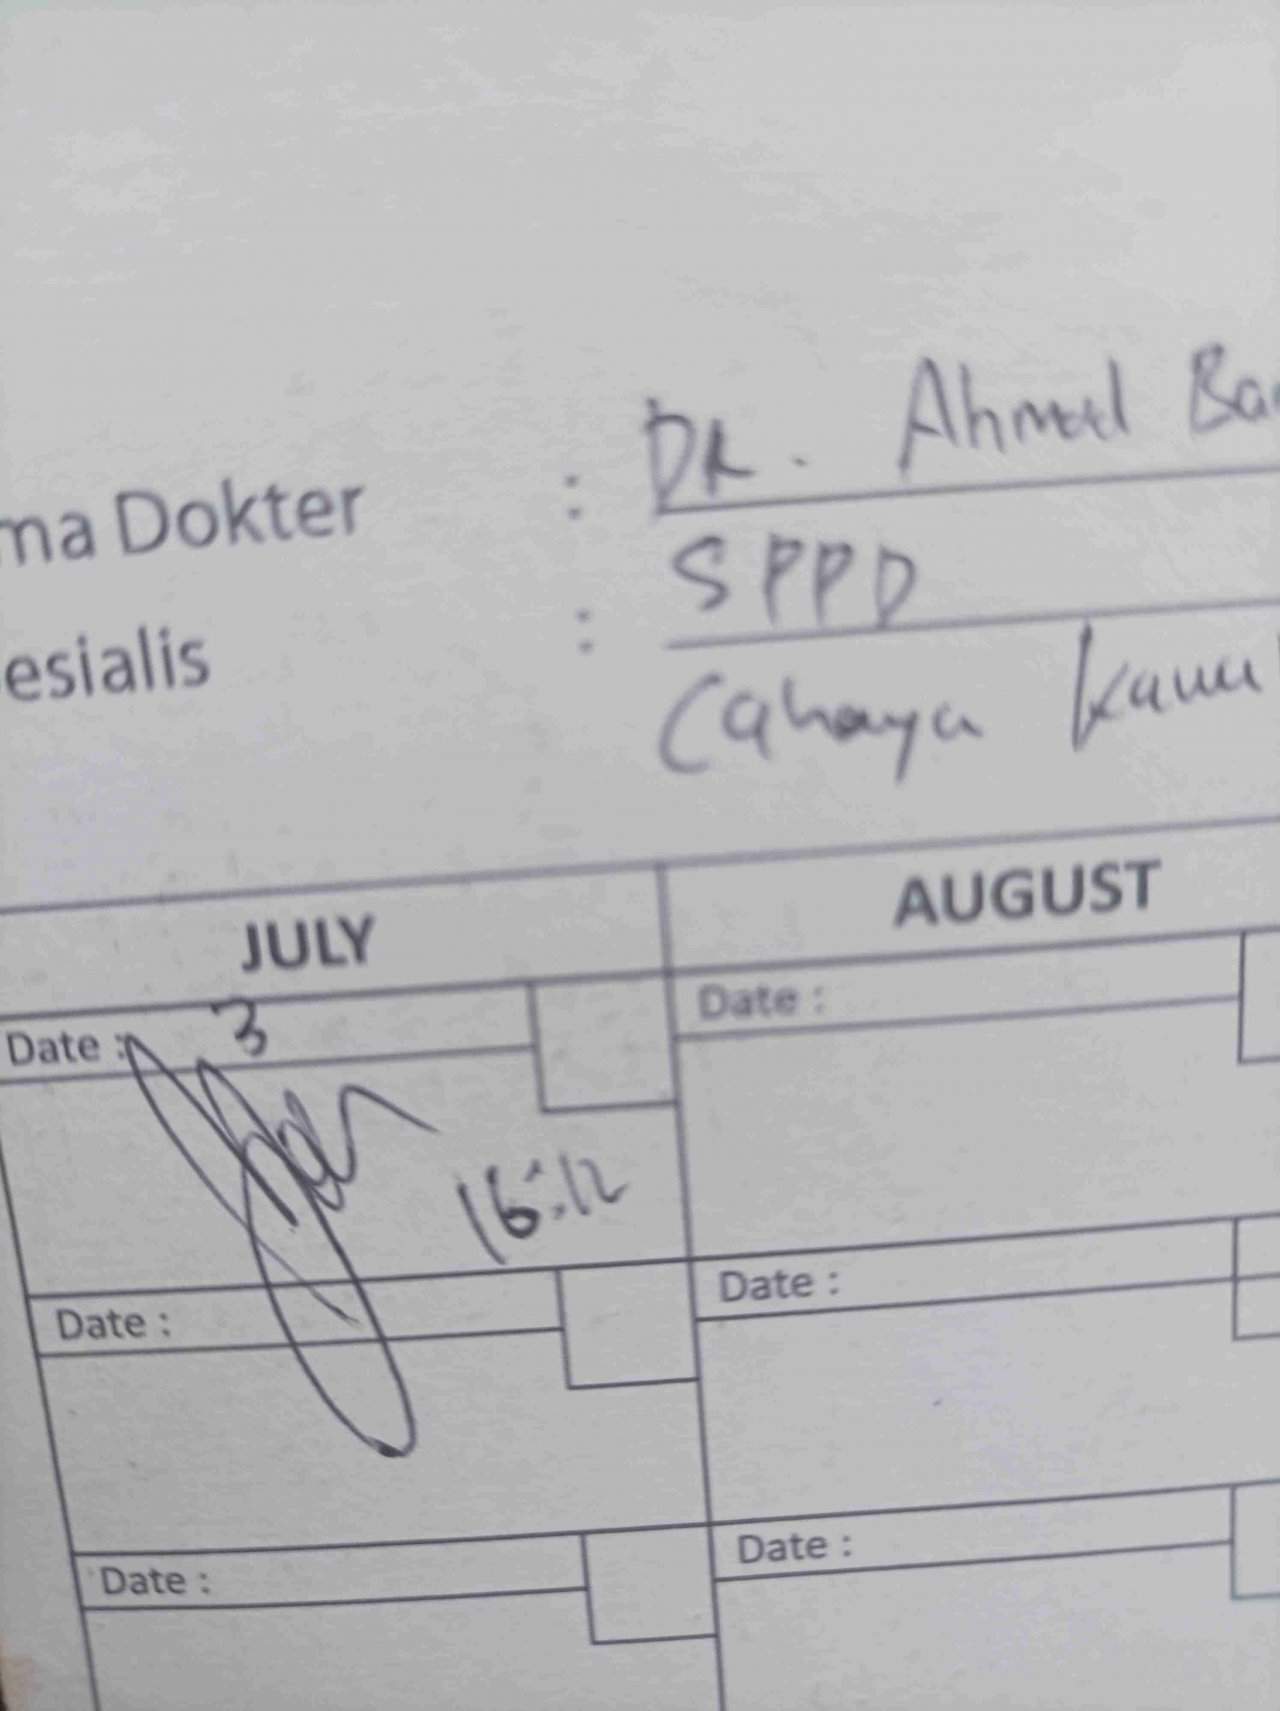 ma Dokter : DR. Ahmad Ba
esialis : SPPD
Cahaya
JULY AUGUST
Date : 3 Date :
16:12
Date : Date :
Date : Date :